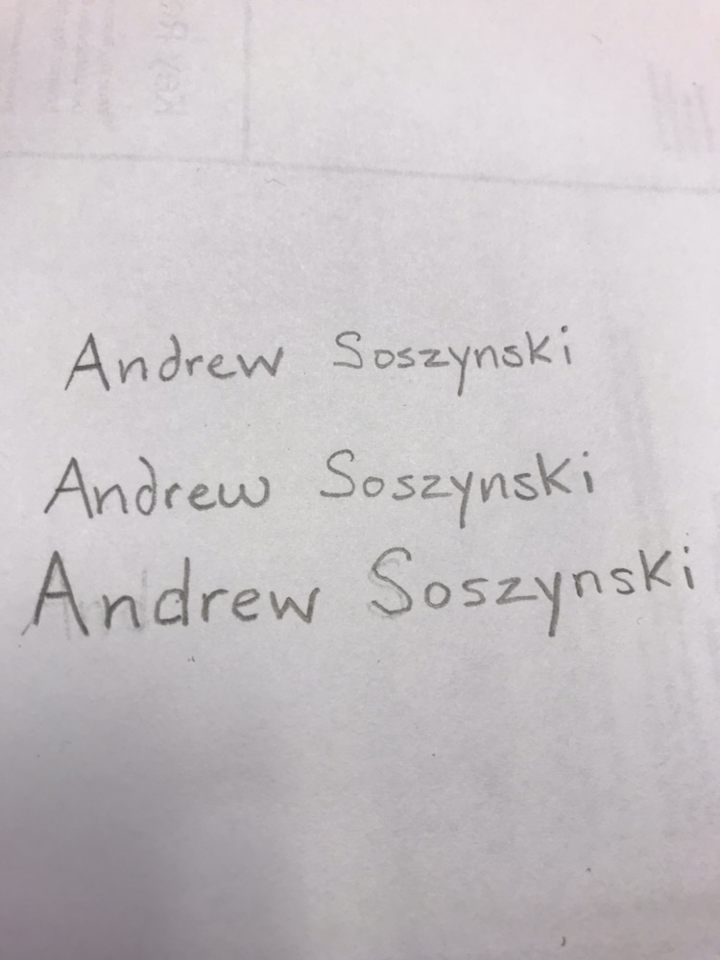 Andrew Soszynski
Andrew Soszynski
Andrew Soszynski